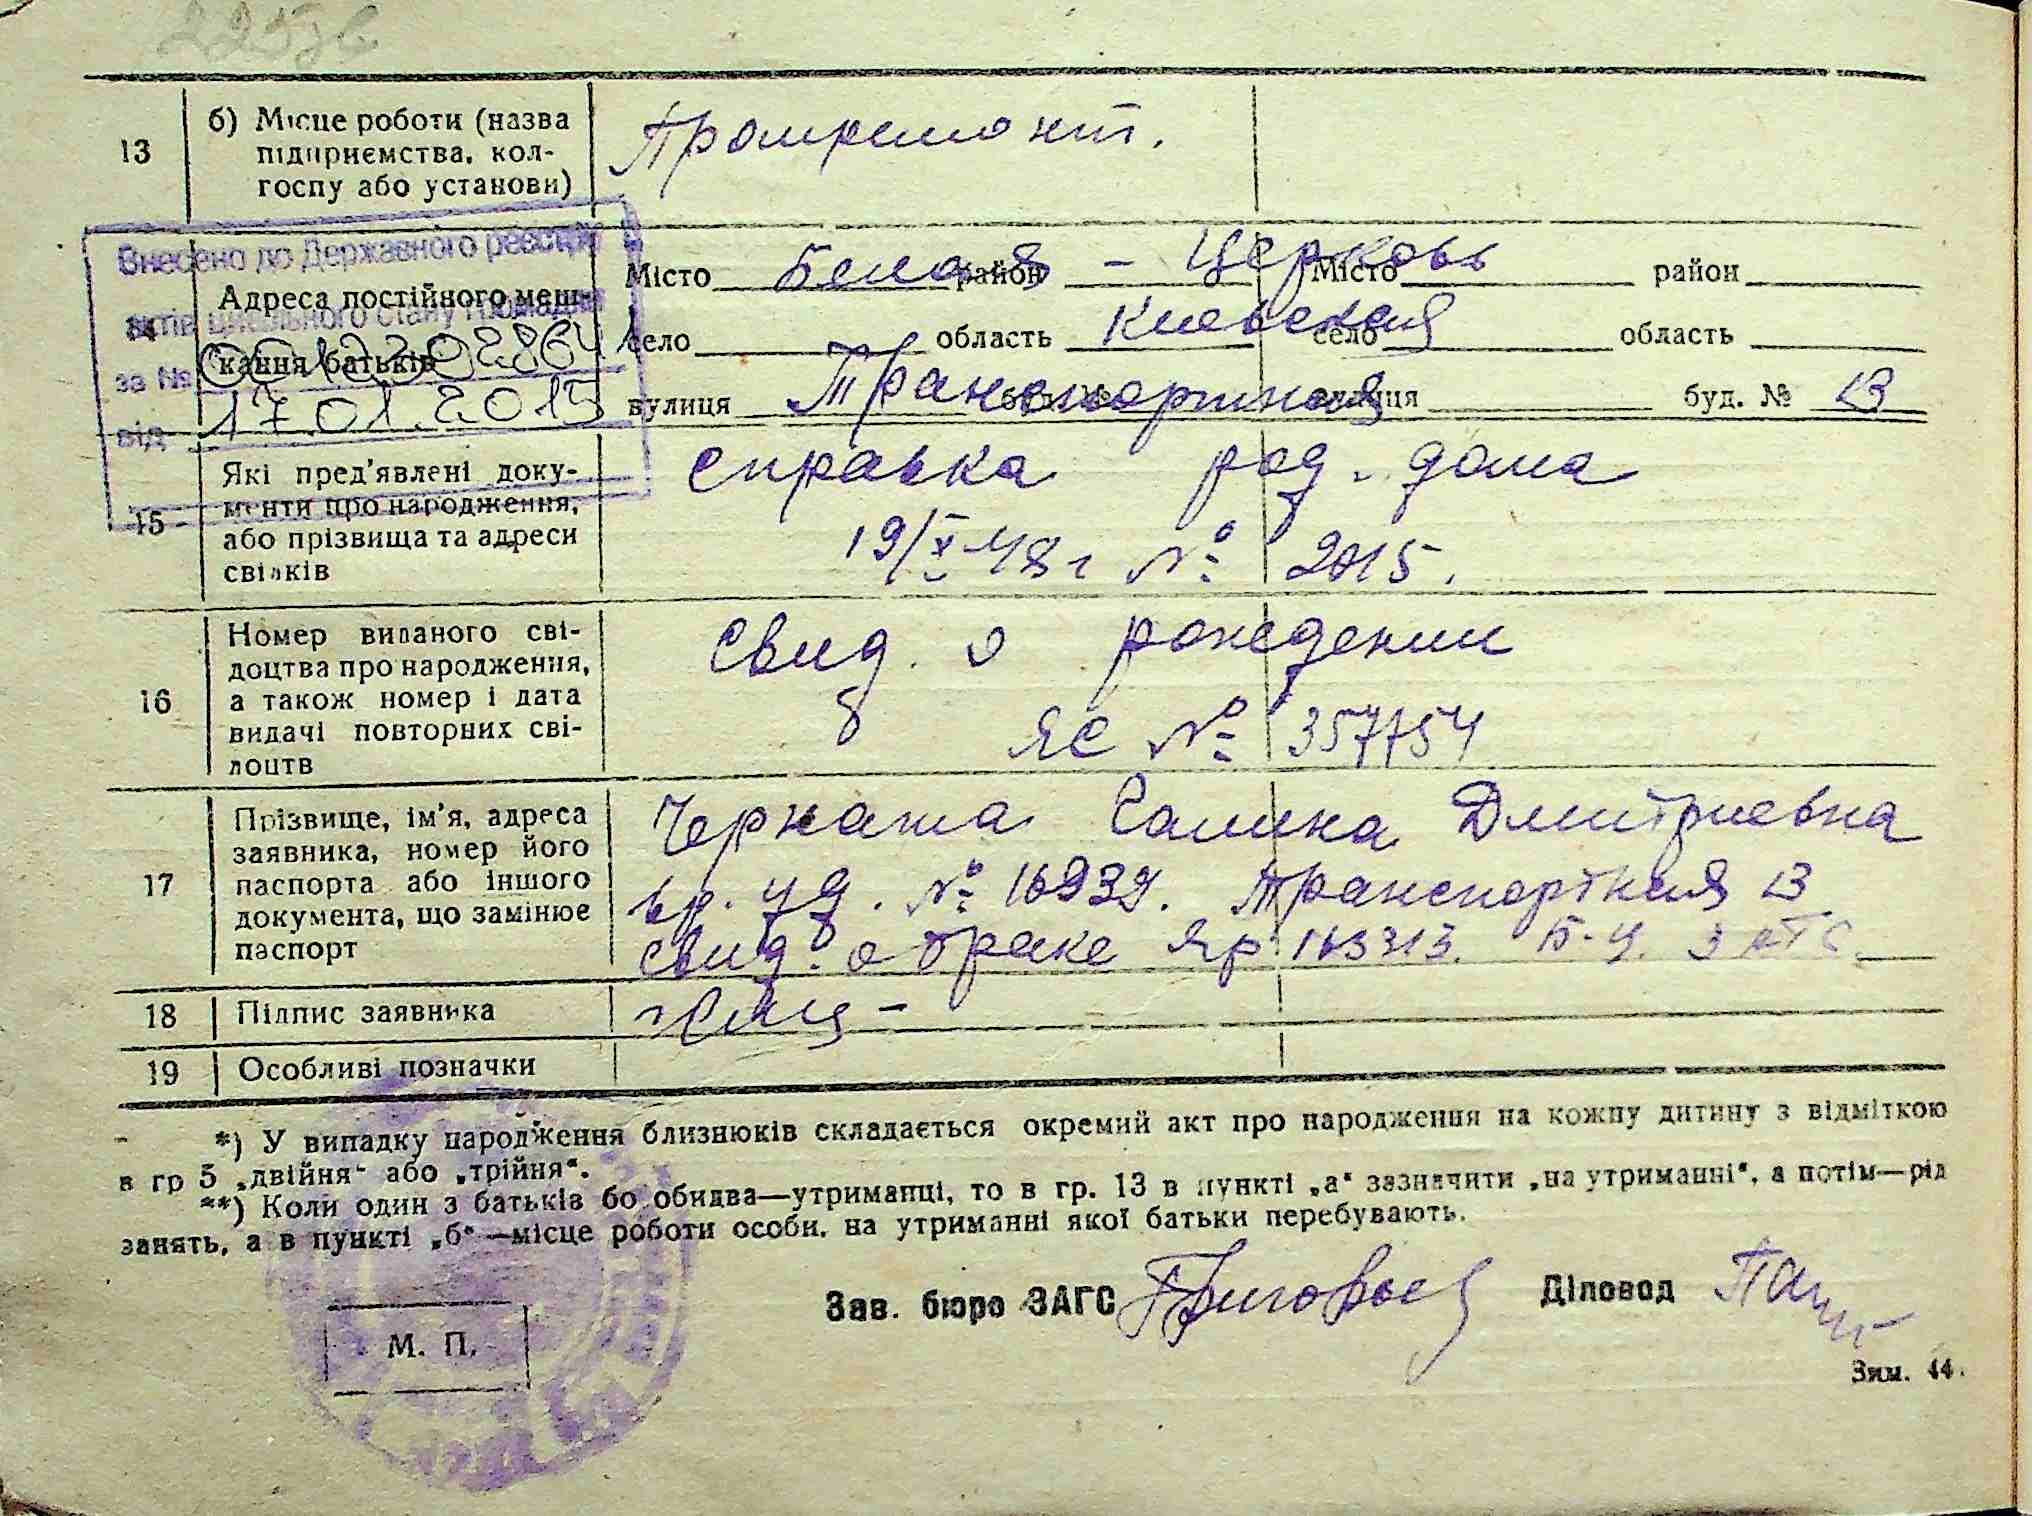 13 б) Місце роботи (назва
підприємства, кол-
госпу або установи)
Промремонт.
Внесено до Державного реєстру
актів цивільного стану громадян
за № 00123302864
від 17.01.2015
14 Адреса постійного меш-
кання батьків
Місто Белая - Церковь район Місто район
село область Киевская село область
вулиця Транспортная буд. № вулиця буд. № 13
15 Які пред'явлені доку-
менти про народження,
або прізвища та адреси
свідків
справка род. дома
19/X-48 г № 2015.
16 Номер виданого сві-
доцтва про народження,
а також номер і дата
видачі повторних сві-
доцтв
Свид. о рождении
ЯС № 357754
17 Прізвище, ім'я, адреса
заявника, номер його
паспорта або іншого
документа, що замінює
паспорт
Галина Дмитриевна
вр. уд. № 16939. Транспортная 13
свид. о браке ЯР 163313. Б-Ц. ЗАГС.
18 Підпис заявника
19 Особливі позначки
*) У випадку народження близнюків складається окремий акт про народження на кожну дитину з відміткою
в гр 5 „двійня“ або „трійня“.
**) Коли один з батьків бо обидва—утриманці, то в гр. 13 в пункті „а“ зазначити „на утриманні“, а потім—рід
занять, а в пункті „б“—місце роботи особи, на утриманні якої батьки перебувають.
Зав. бюро ЗАГС Григорьев Діловод
М. П.
Зим. 44.